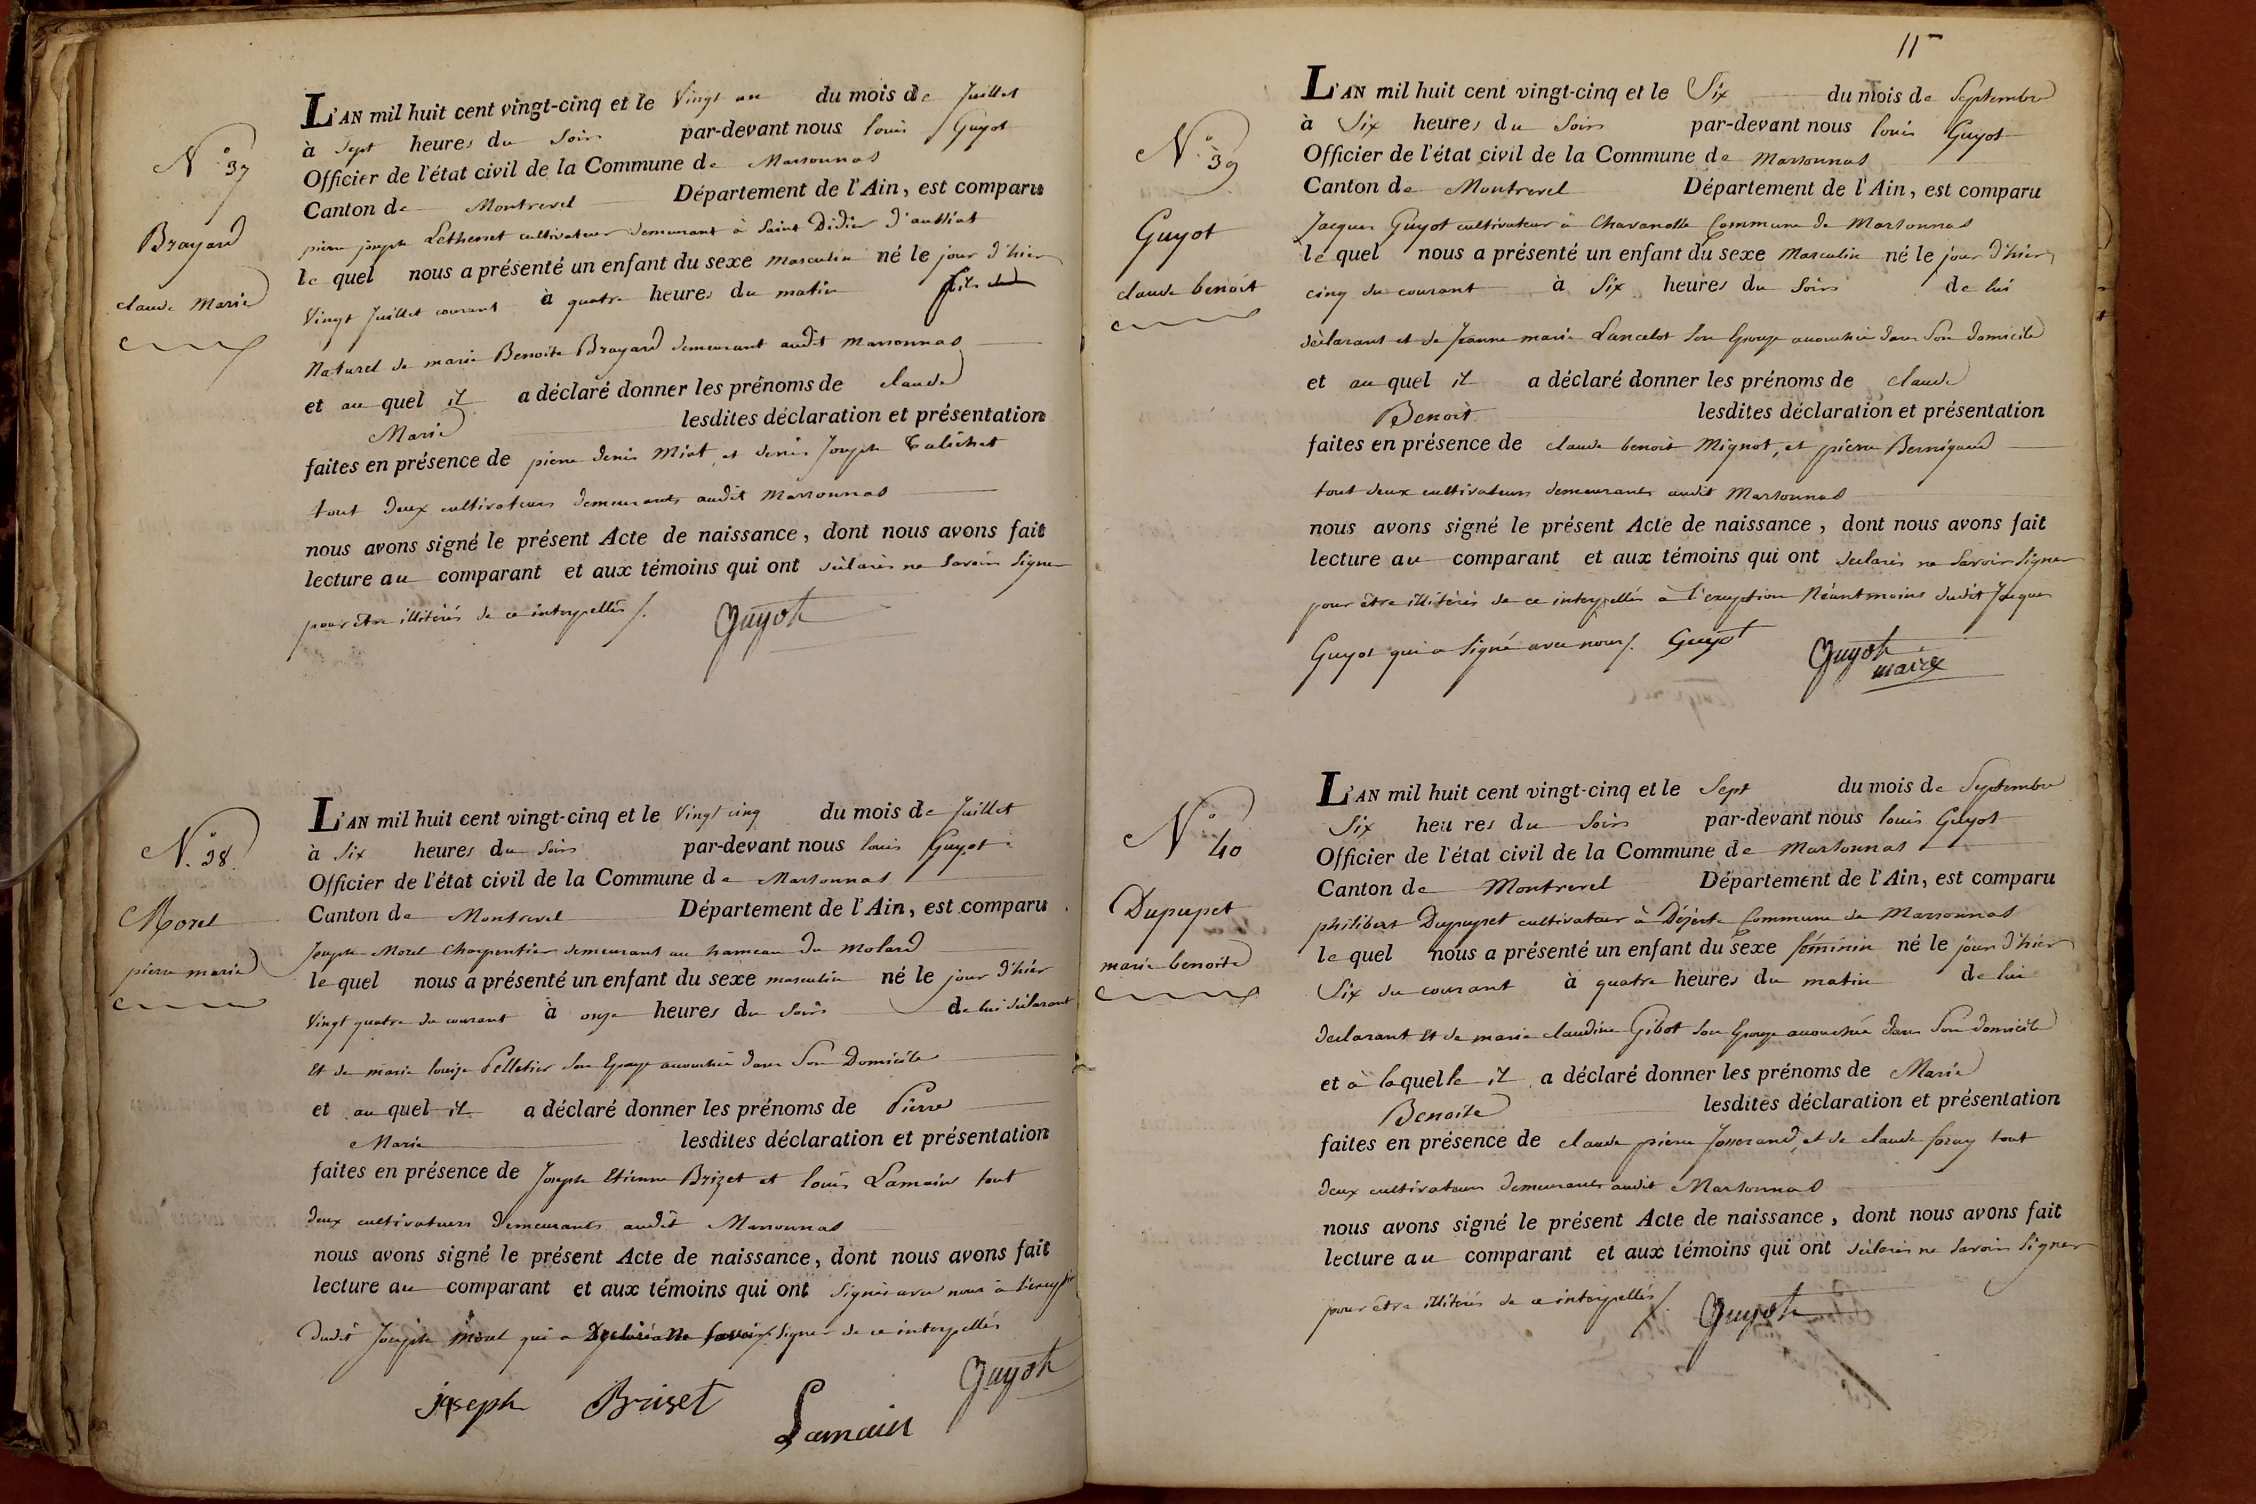 N.° 37
Brayard
claude Marie
L'AN mil huit cent vingt-cinq et le Vingt un du mois de Juillet
à Sept heures du Soir par-devant nous louis Guyot
Officier de l'état civil de la Commune de Marsonnas
Canton de Montrevel Département de l'Ain, est comparu
pierre joseph cultivateur demeurant à Saint Didier d'aussiat
le quel nous a présenté un enfant du sexe masculin né le jour d'hier
Vingt Juillet courant à quatre heures du matin fils
Naturel de marie Benoite Brayard demeurant audit Marsonnas
et au quel il a déclaré donner les prénoms de claude
Marie lesdites déclaration et présentation
faites en présence de pierre denis Miat, et denis Joseph
tout deux cultivateurs demeurants audit Marsonnas
nous avons signé le présent Acte de naissance, dont nous avons fait
lecture au comparant et aux témoins qui ont déclarés ne Savoir Signer
pour être illitérés de ce interpellés /. Guyot
N.° 38
Morel
pierre marie
L'AN mil huit cent vingt-cinq et le Vingt cinq du mois de Juillet
à Six heures du Soir par-devant nous louis Guyot
Officier de l'état civil de la Commune de Marsonnas
Canton de Montrevel Département de l'Ain, est comparu
Joseph Morel Charpentier demeurant au hameau du Molard
le quel nous a présenté un enfant du sexe masculin né le jour d'hier
Vingt quatre du courant à onze heures du Soir de lui déclarant
Et de marie louise Pelletier Son Epouse accouchée dans Son Domicile
et au quel il a déclaré donner les prénoms de Pierre
Marie lesdites déclaration et présentation
faites en présence de Joseph Etienne Brizet et louis Lamain tout
deux cultivateurs demeurants audit Marsonnas
nous avons signé le présent Acte de naissance, dont nous avons fait
lecture au comparant et aux témoins qui ont Signés avec nous à l'exception
dudit Joseph Morel qui a Déclaré ne savoir Signer de ce interpellés
joseph Briset Lamain Guyot
115
N.° 39
Guyot
claude benoit
L'AN mil huit cent vingt-cinq et le Six du mois de Septembre
à Six heures du Soir par-devant nous louis Guyot
Officier de l'état civil de la Commune de Marsonnas
Canton de Montrevel Département de l'Ain, est comparu
Jacques Guyot cultivateur à Chavanolle Commune de Marsonnas
le quel nous a présenté un enfant du sexe Masculin né le jour d'hier
cinq du courant à Six heures du Soir de lui
déclarant et de Jeanne marie Lancelot Son Epouse accouchée dans Son domicile
et au quel il a déclaré donner les prénoms de claude
Benoit lesdites déclaration et présentation
faites en présence de claude benoit Mignot, et pierre Bernigaud
tout deux cultivateurs demeurants audit Marsonnas
nous avons signé le présent Acte de naissance, dont nous avons fait
lecture au comparant et aux témoins qui ont déclarés ne Savoir Signer
pour être illitérés de ce interpellés à l'exception Néantmoins dudit Jacques
Guyot qui a Signé avec nous /. Guyot Guyot
maire
N.° 40
Dupupet
marie benoite
L'AN mil huit cent vingt-cinq et le Sept du mois de Septembre
Six heures du Soir par-devant nous louis Guyot
Officier de l'état civil de la Commune de Marsonnas
Canton de Montrevel Département de l'Ain, est comparu
philibert Dupupet cultivateur à Commune de Marsonnas
le quel nous a présenté un enfant du sexe féminin né le jour d'hier
Six du courant à quatre heures du matin de lui
déclarant Et de marie claudine Gibot Son Epouse accouchée dans Son domicile
et à laquelle il a déclaré donner les prénoms de Marie
Benoite lesdites déclaration et présentation
faites en présence de claude pierre Josserand, et de claude foray tout
deux cultivateurs demeurants audit Marsonnas
nous avons signé le présent Acte de naissance, dont nous avons fait
lecture au comparant et aux témoins qui ont déclarés ne Savoir Signer
pour être illitérés de ce interpellés /. Guyot